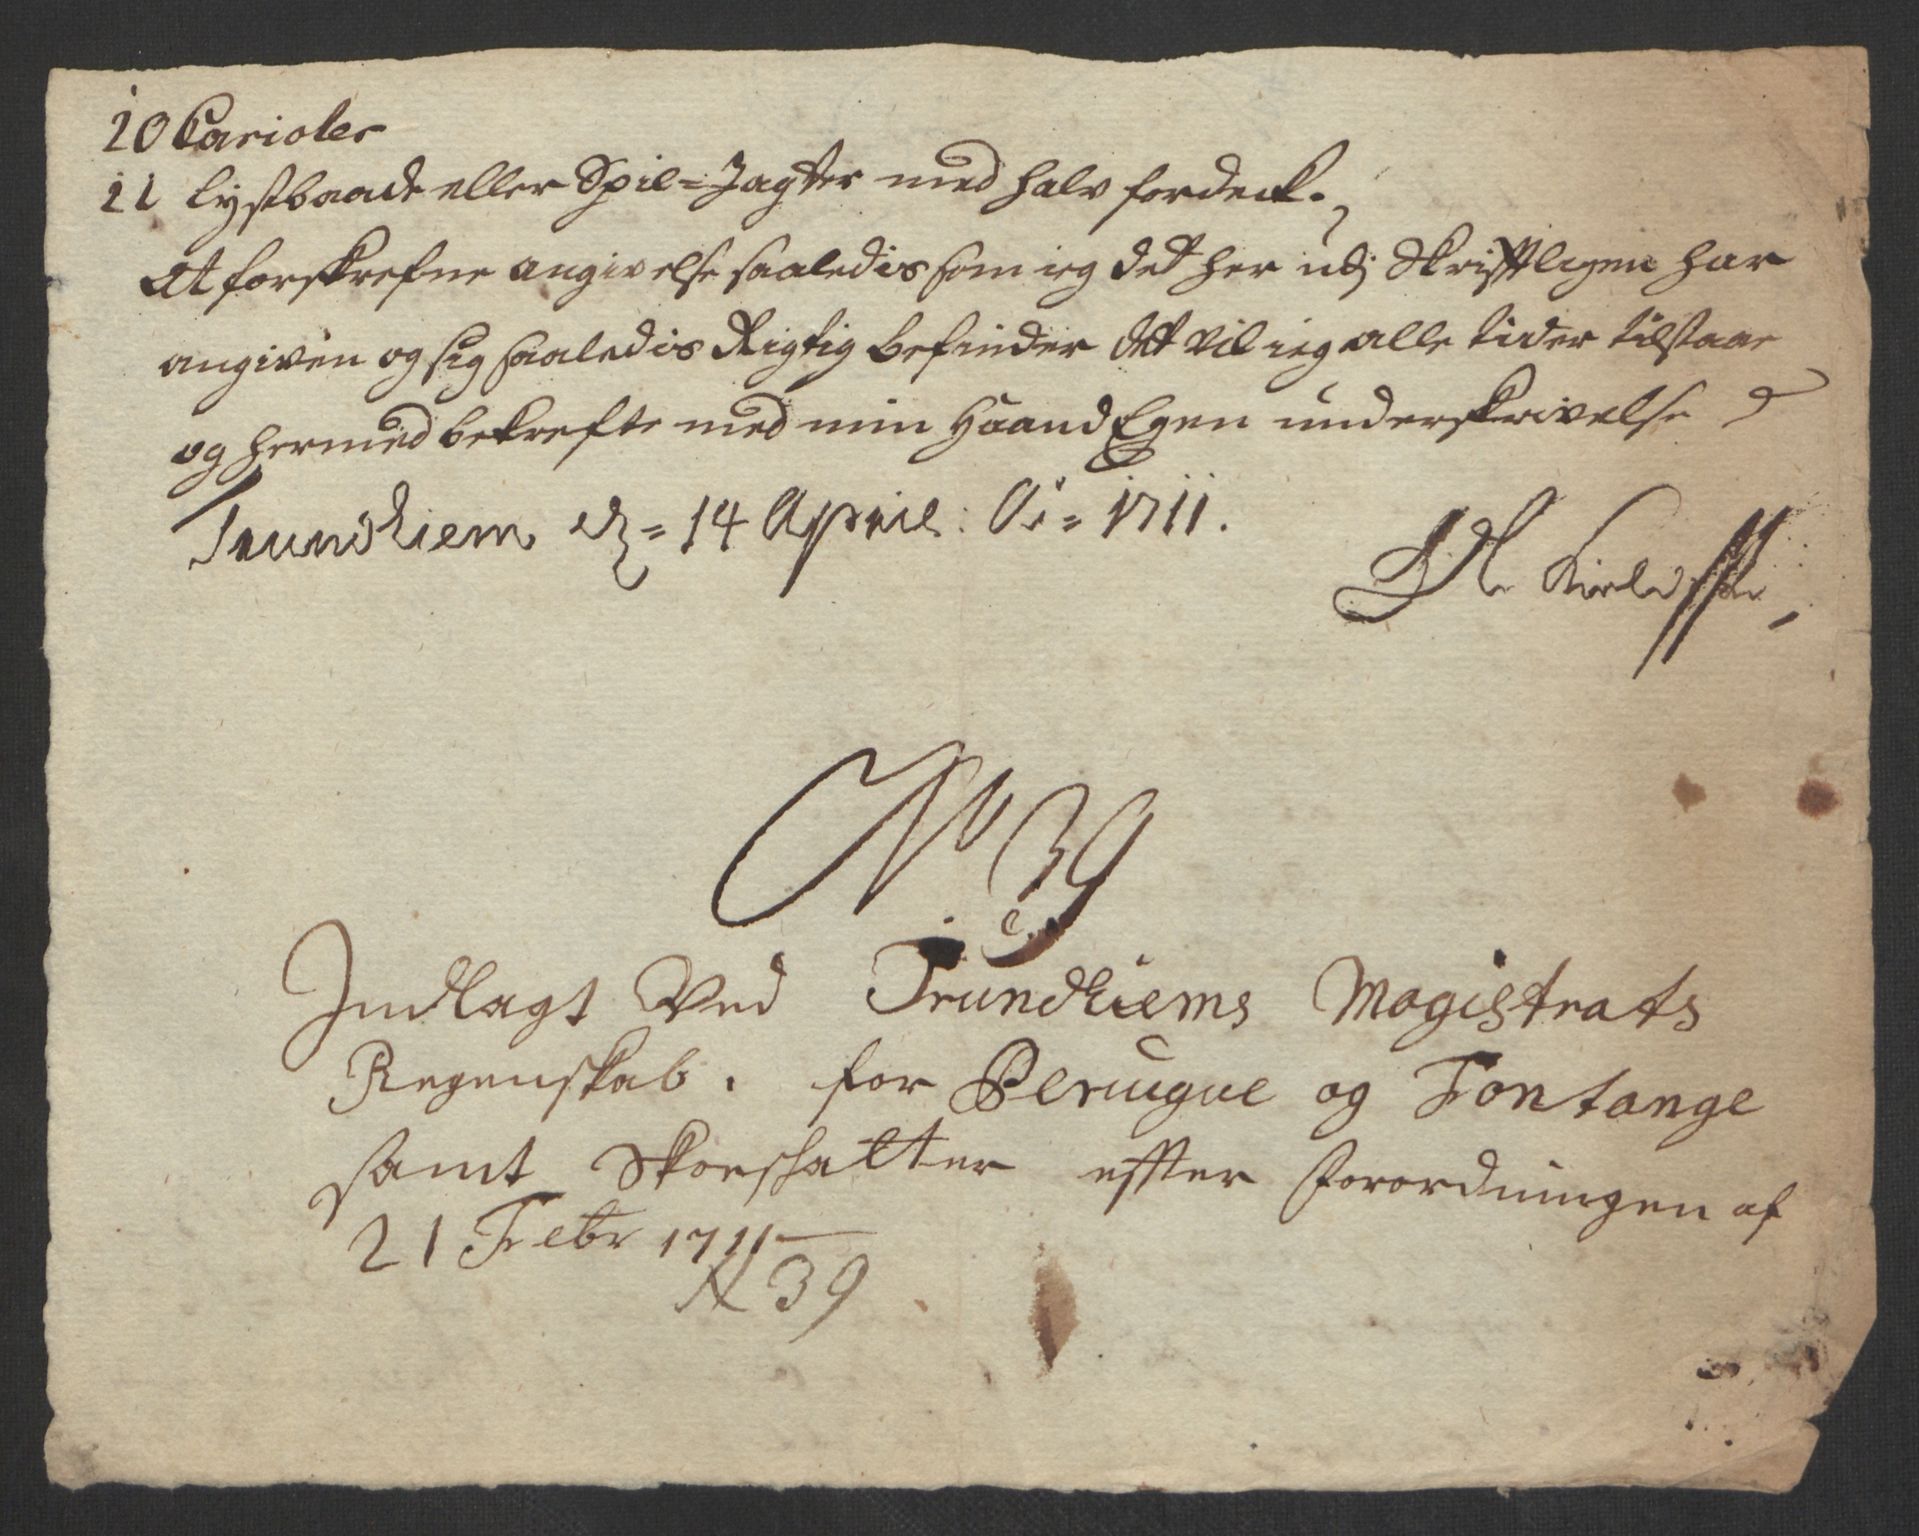 10 Carioler
11 Lystbaade eller Spil=Jagter med halv fordeck.
At forskrefne angivelse saaledis som ieg det her udj Skrifftligen har
angiven og sig saaledis Rigtig befinder dett vil ieg alle tider tilstaae
og hermed bekrefte med min Haand Egen underskrivelse
Trundhiem d = 14 April: Ao = 1711.
No 39
Indlagt Ved Trundhiems Magistrats
Regenskab. for Peruque og Fontange
samt Skoeschatter effter Forordningen af
21 Febr 1711
N 39